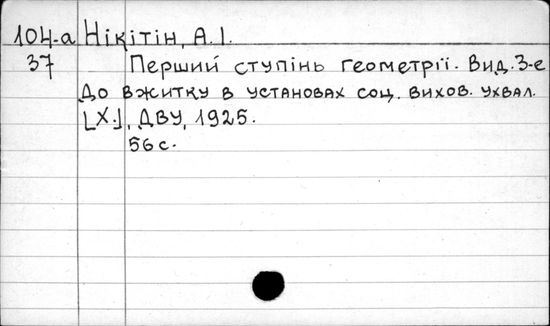 104-а Нікітін, А.І.
37 Перший ступінь геометрії. Вид. 3-е
До вжитку в установах соц. вихов. ухвал.
[Х.], ДВУ, 1925.
56 с.